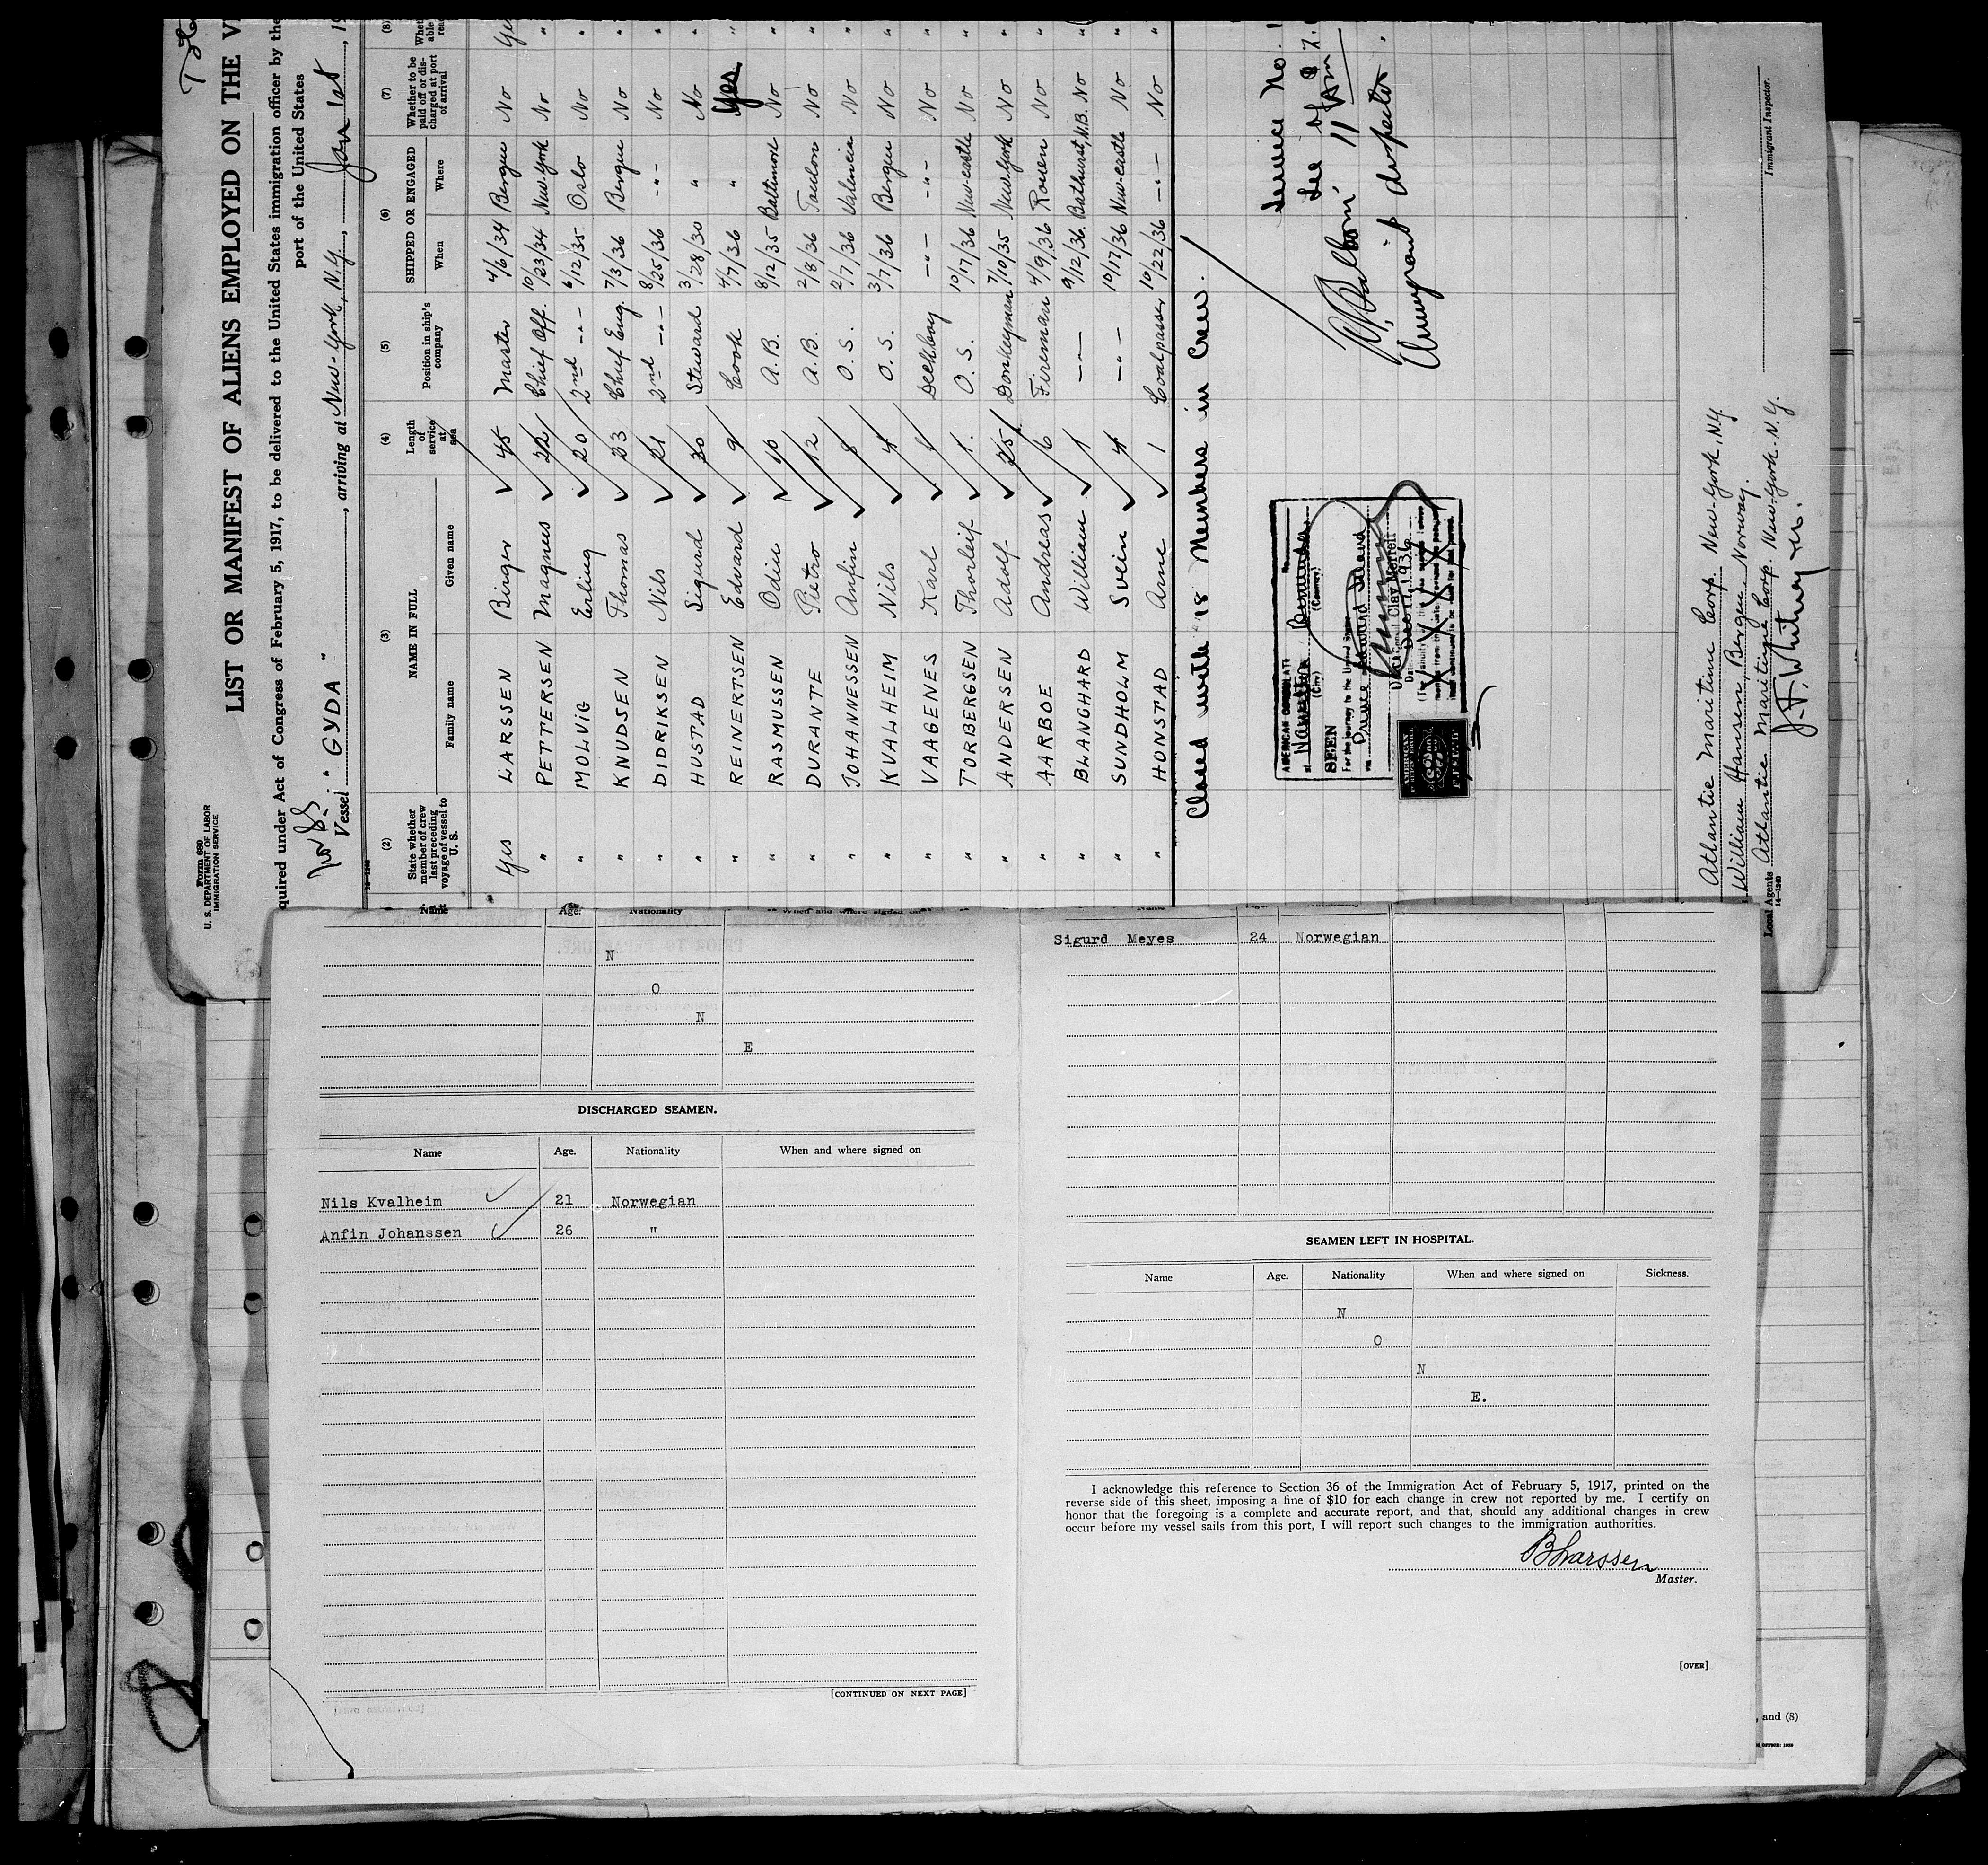 Form 680
U. S. DEPARTMENT OF LABOR
IMMIGRATION SERVICE
LIST OR MANIFEST OF ALIENS EMPLOYED ON THE V
quired under Act of Congress of February 5, 1917, to be delivered to the United States immigration officer by the
port of the United States
Vessel "GYDA", arriving at New-York, N.Y., Jan 1st, 19
(2) (3) (4) (5) (6) (7) (8)
State whether member of crew last preceding voyage of vessel to U. S.
NAME IN FULL
Family name Given name
Length of service at sea
Position in ship's company
SHIPPED OR ENGAGED
When Where
Whether to be paid off or discharged at port of arrival
Yes LARSSEN Birger 45 Master 4/6/34 Bergen No Yes
" PETTERSEN Magnus 22 Chief Off. 10/23/34 New-York No "
" MOLVIG Erling 20 2nd -"- 6/12/35 Oslo No "
" KNUDSEN Thomas 23 Chief Eng. 7/3/36 Bergen No "
" DIDRIKSEN Nils 21 2nd -"- 8/25/36 -"- No "
" HUSTAD Sigurd 20 Steward 3/28/30 " No "
" REINERTSEN Edvard 9 Cook 4/7/36 " Yes "
" RASMUSSEN Odin 10 A.B. 8/12/35 Baltimore No "
" DURANTE Pietro 12 A.B. 2/8/36 Toulon No "
" JOHANNESSEN Anfin 8 O.S. 2/7/36 Valencia No "
" KVALHEIM Nils 4 O.S. 3/7/36 Bergen No "
" VAAGENES Karl 1 Deckboy -"- -"- No "
" TORBERGSEN Thorleif 1 O.S. 10/17/36 New-castle No "
" ANDERSEN Adolf 25 Donkeyman 7/10/35 New-York No "
" AARBOE Andreas 6 Fireman 4/9/36 Rouen No "
" BLANCHARD William 1 -"- 9/12/36 Bathurst, N.B. No "
" SUNDHOLM Svein 4 -"- 10/17/36 New-castle No "
" HONSTAD Arne 1 Coalpasser 10/22/36 -"- No "
Closed with 18 Members in Crew.
Immigrant Inspector
AMERICAN CONSULATE
(City) (Country)
SEEN
For the journey to the United States
Dec. 1936
AMERICAN
Atlantic Maritime Corp. New-York, N.Y.
William Hansen, Bergen Norway.
Local Agents Atlantic Maritime Corp. New-York N.Y.
14—1240
Immigrant Inspector.
Name Age. Nationality When and where signed on
N
O
N
E
DISCHARGED SEAMEN.
Name Age. Nationality When and where signed on
Nils Kvalheim 21 Norwegian
Anfin Johanssen 26 "
[CONTINUED ON NEXT PAGE]
Sigurd Meyes 24 Norwegian
SEAMEN LEFT IN HOSPITAL.
Name Age. Nationality When and where signed on Sickness.
N
O
N
E.
I acknowledge this reference to Section 36 of the Immigration Act of February 5, 1917, printed on the
reverse side of this sheet, imposing a fine of $10 for each change in crew not reported by me. I certify on
honor that the foregoing is a complete and accurate report, and that, should any additional changes in crew
occur before my vessel sails from this port, I will report such changes to the immigration authorities.
B Larssen
Master.
[OVER]
, and (8)